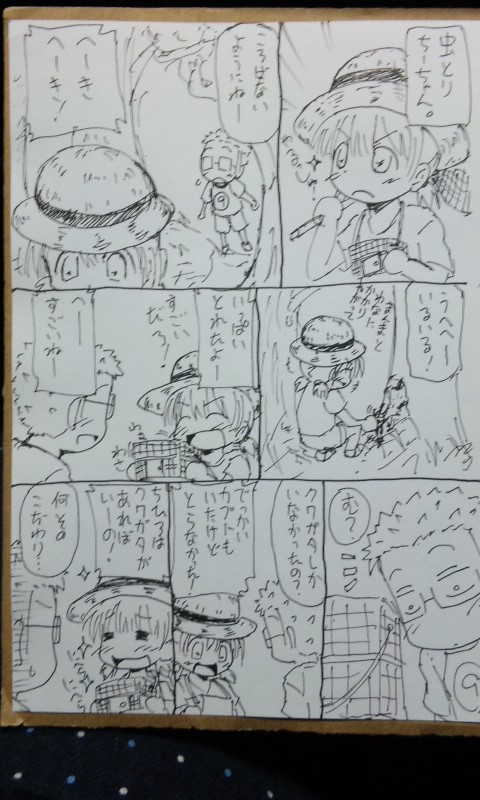 虫とり
ちーちゃん。
ころばない
ようにねー
へーき
へーき!
うへへー
いるいる!
まんまと
ワナに
かかり
いっぱい
とれたよー
すごい
だろ!
へー
すごいねー
む?
クワガタしか
いなかったの?
でっかい
カブトも
いたけど
とらなかた!
ちひろは
クワガタが
あれば
いーの!
何その
こだわり…